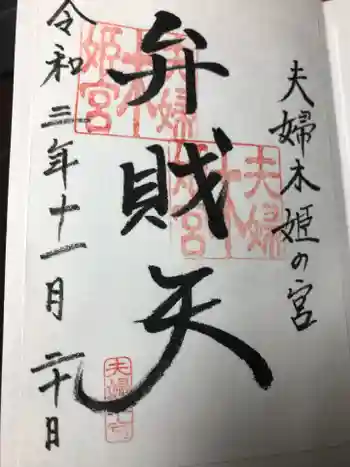 夫婦木姫の宮
弁財天
令和三年十一月二十日
夫婦
木
姫宮
夫婦
木
姫宮